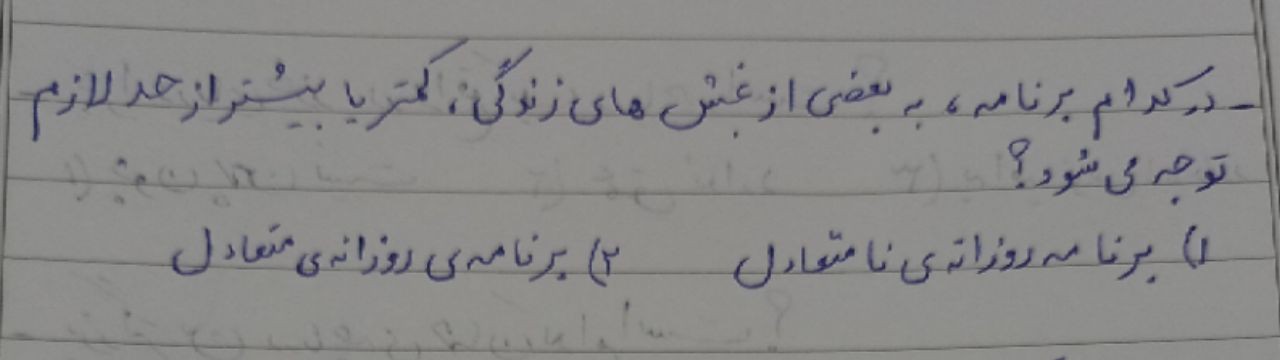 - در کدام برنامه، به بعضی از بخش های زندگی، کمتر یا بیشتر از حد لازم
توجه می شود؟
۱) برنامه روزانه ی نامتعادل ۲) برنامه ی روزانه ی متعادل